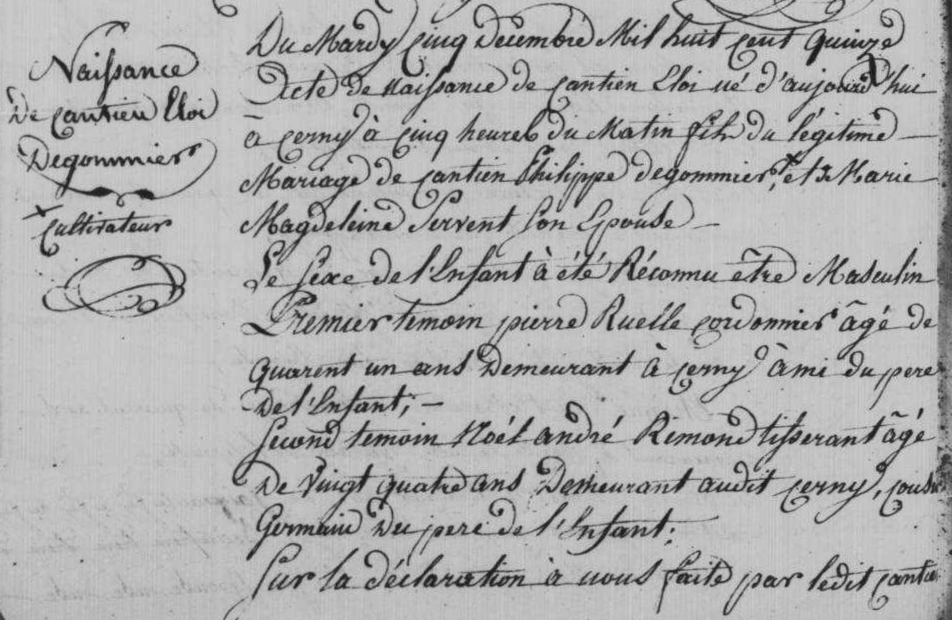 Naissance
De cantien Eloi
Degommier
+
Cultivateur
Du Mardy Cinq Décembre Mil huit cent Quinze
Acte de Naissance de cantien Eloi né d'aujourd'hui
à cerny à cinq heures du Matin fils du légitime
Mariage de cantien Philippe degommier,+ et de Marie
Magdeleine Servent Son Epouse —
Le Sexe de l'Enfant à été Réconnu être Masculin
Premier temoin pierre Ruelle cordonnier âgé de
quarent un ans Demeurant à cerny àmi du pere
De l'Enfant; —
Second temoin Noél andré Remond tisserant âgé
De Vingt quatre ans Demeurant audit cerny, cousin
Germain Du pere de l'Enfant;
Sur la déclaration à nous faite par ledit cantien